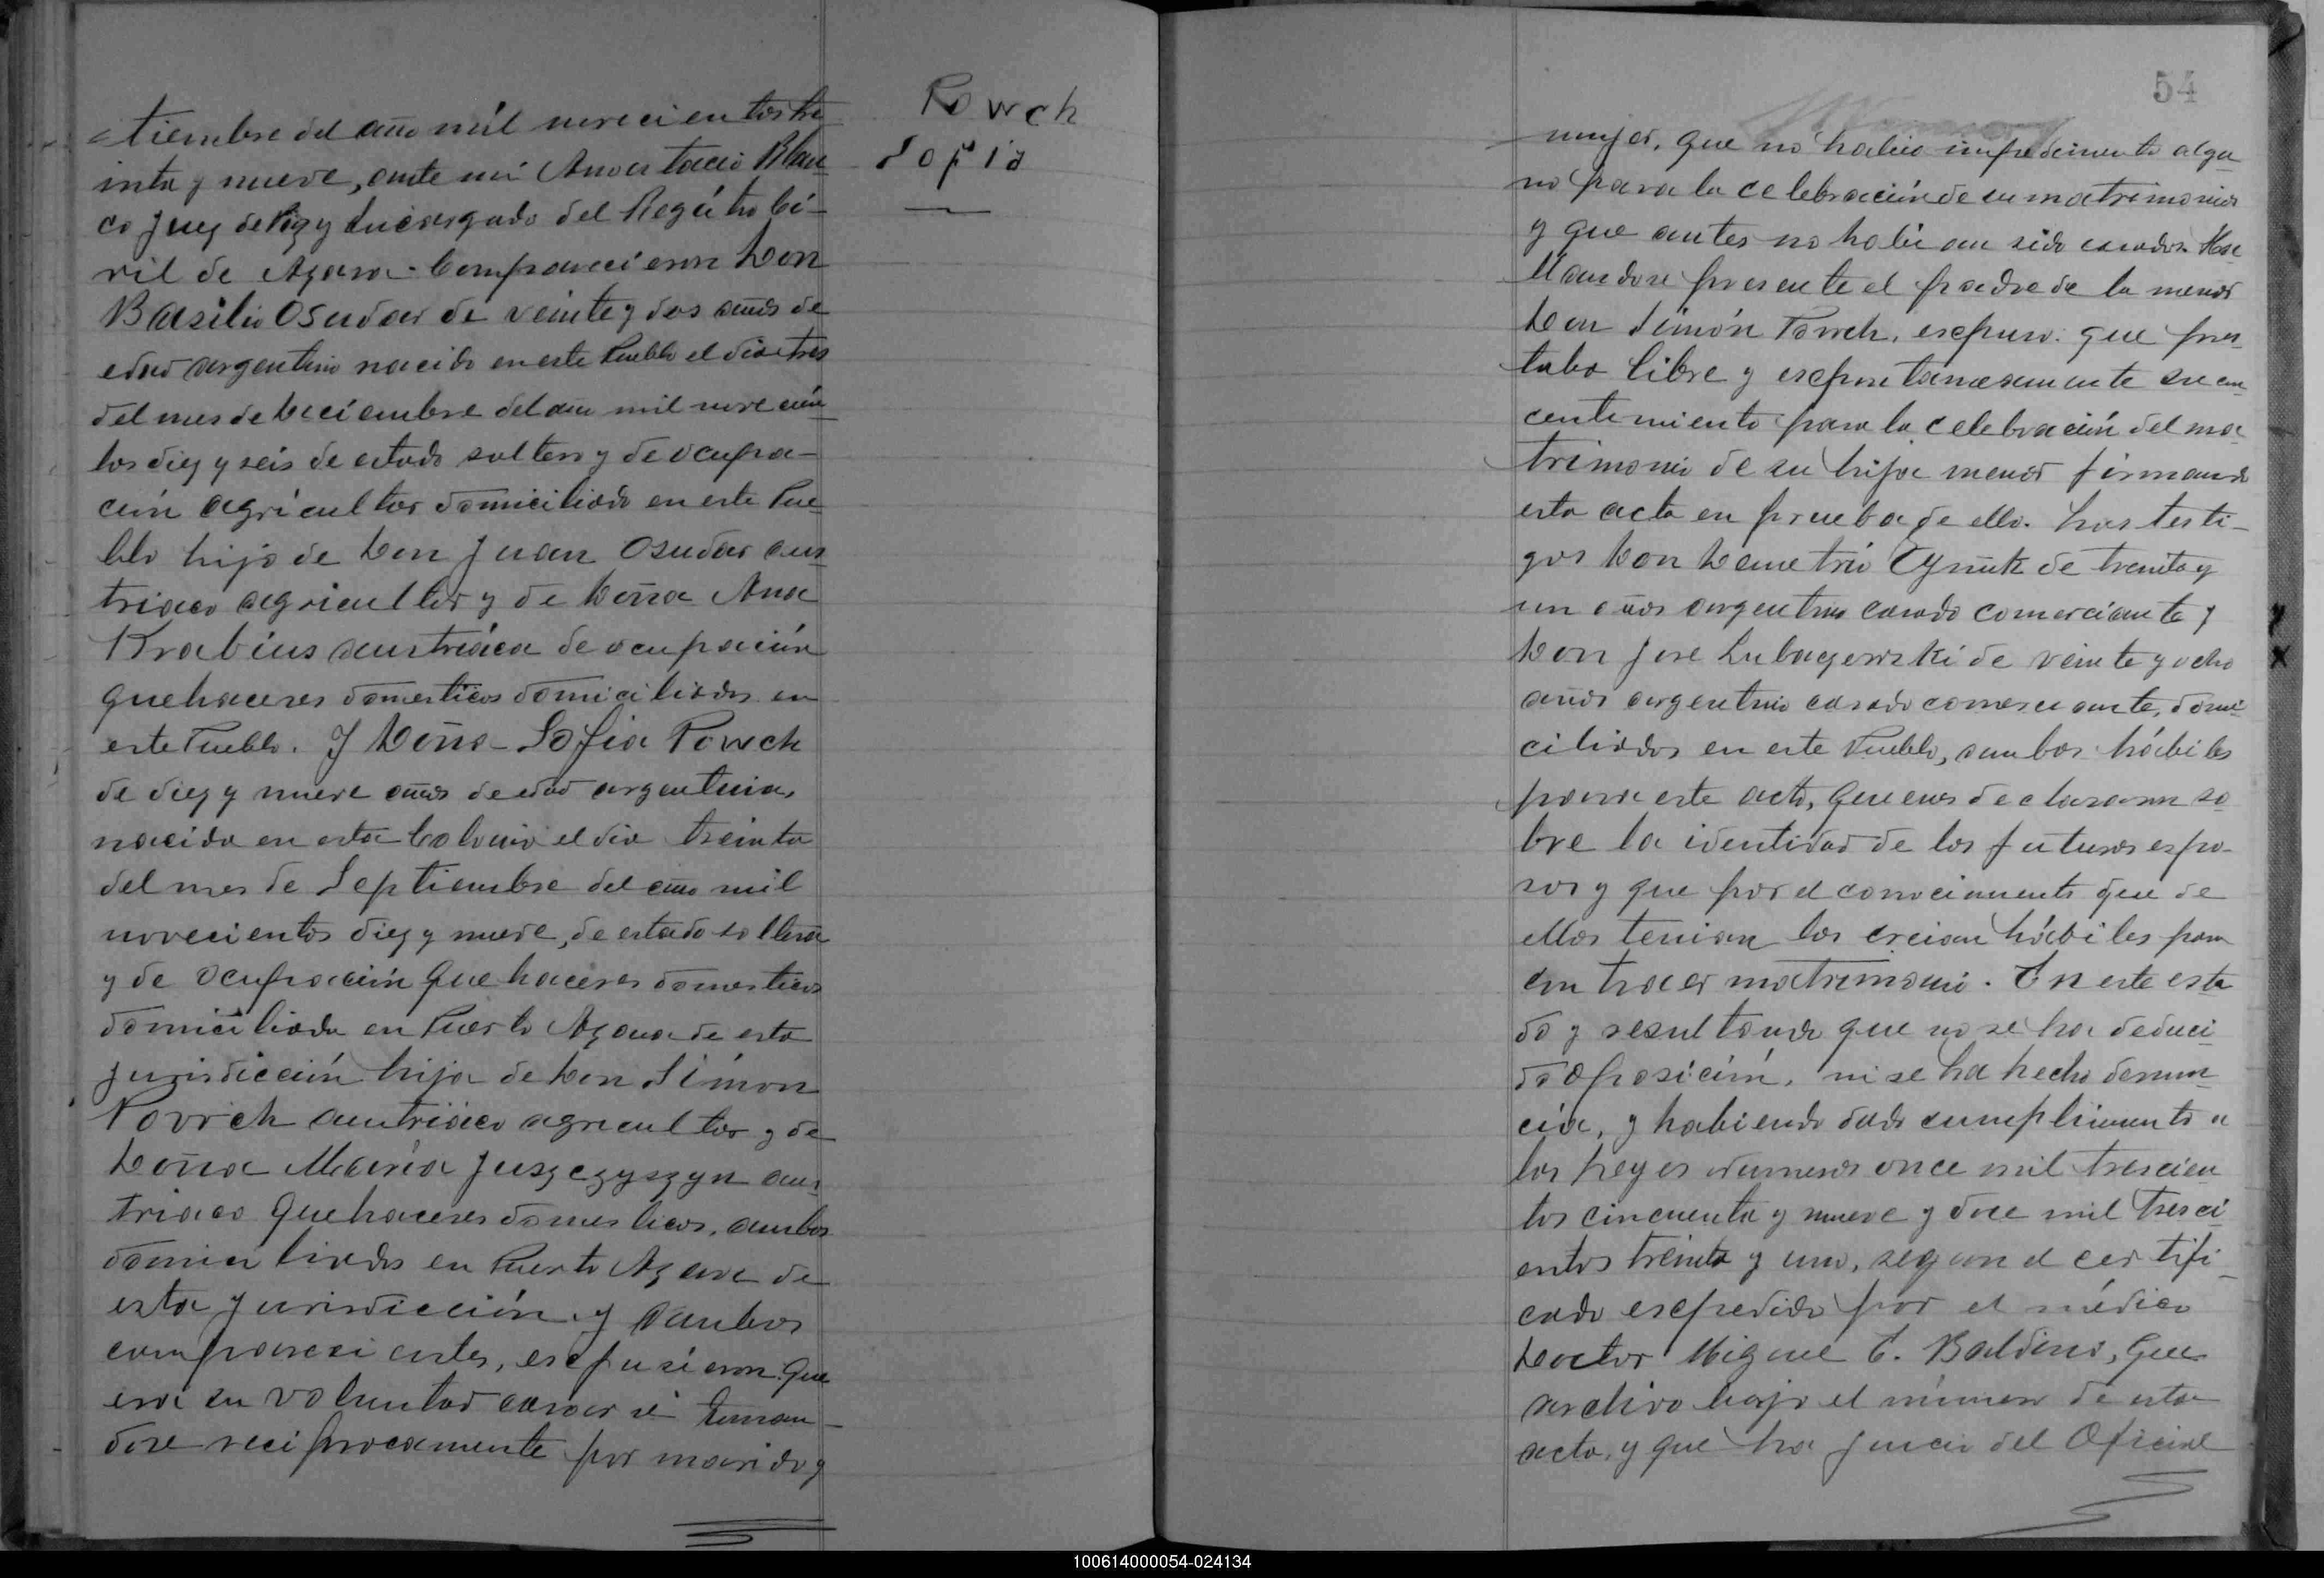 tiembre del año mil novecientos tre
inta y nueve, ante mi Anastacio Blan
co Juez de Paz y Encargado del Registro Ci-
vil de Azara. Comparecieron Don
Basilio Osudar de veinte y dos años de
edad argentino nacido en este Pueblo el dia tres
del mes de Deciembre del año mil novecien
tos diez y seis de estado soltero y de ocupa-
ción agricultor domiciliado en este Pue
blo hijo de Don Juan Osudar aus
triaco agricultor y de Doña Ana
Krabius austriáca de ocupación
quehaceres domesticos domiciliados en
este Pueblo. Y Doña Sofia Powch
de diez y nueve años de edad argentina,
nacida en esta Colonia el dia treinta
del mes de Septiembre del año mil
novecientos diez y nueve, de estado soltera
y de ocupación quehaceres domesticos
domiciliada en Puerto Azara de esta
jurisdicción hija de Don Simón
Powch austriáco agricultor y de
Doña Maria Juszczyszyn aus
triaca quehaceres domesticos, ambos
domiciliados en Puerto Azara de
esta jurisdicción. y ambos
comparecientes, escpusieron: que
era su voluntad casarsé toman-
dose reciprocamente por marido y
Powch
Sofia
54
mujer, que no habia impedimento algu
no para la celebración de su matrimonio
y que antes no habian sido casados. Ha
llandose presente el padre de la menor
Don Simón Powch, escpuso: que pres
taba libre y escpontaneamente su con
centimiento para la celebración del ma
trimonio de su hija menor firmando
esta acta en prueba de ello. Los testi-
gos Don Demetrio de treinta y
un años argentino casado comerciante y
Don Jose de veinte y ocho
años argentino casado comerciante, domi
ciliados en este Pueblo, ambos hábiles
para este acto, quienes declararon so
bre la identidad de los futuros espo-
sos y que por el conocimiento que de
ellos tenian los creian hábiles para
contraer matrimonio. En este esta
do y resultando que no se ha deduci
do oposición, ni se ha hecho denun
cia, y habiendo dado cumplimento a
las Leyes numeros once mil trescien
tos cincuenta y nueve y doce mil tresci
entos treinta y uno, segun el certifi
cado escpedido por el médico
Doctor Miguel C. Baldino, que
archivo bajo el número de esta
acta, y que ha juicio del Oficial
100614000054-024134